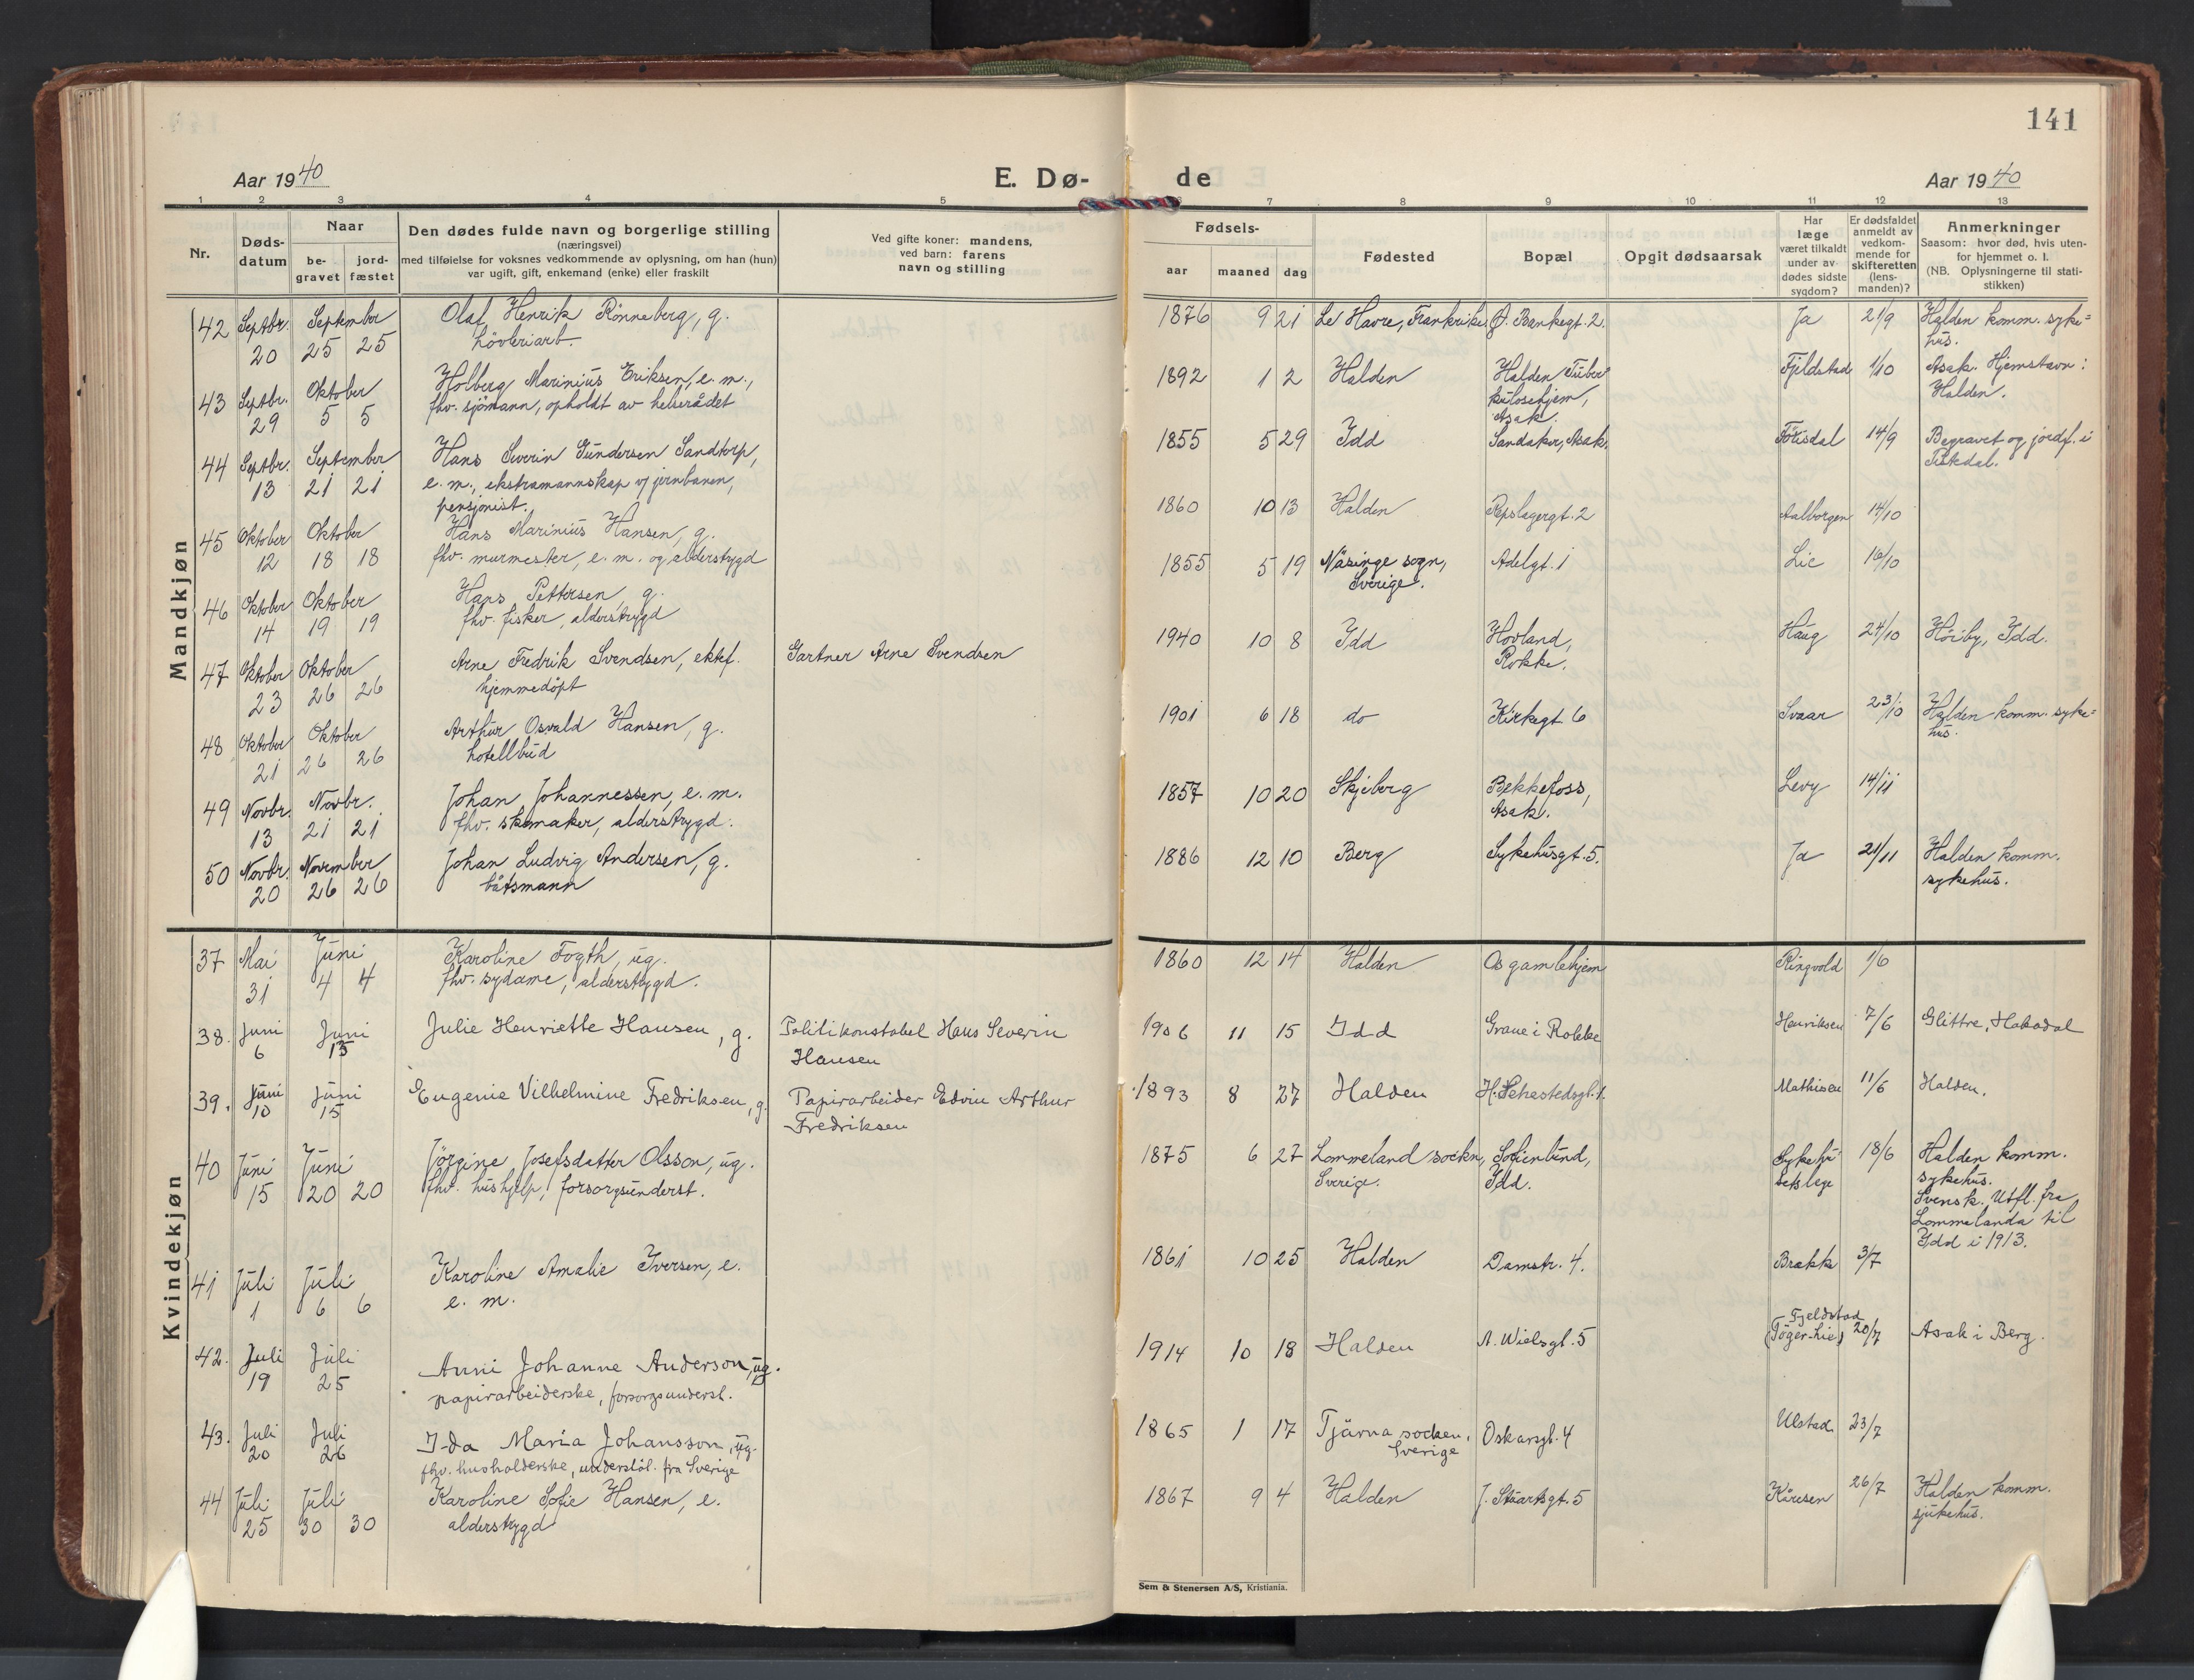 141
Aar 1940
E. Dø-
de
Aar 1940
1 2 3 4 5
6 7 8 9 10 11 12 13
Nr.
Døds-
datum
Naar
be-
gravet
jord-
fæstet
Den dødes fulde navn og borgerlige stilling
(næringsvei)
med tilføielse for voksnes vedkommende av oplysning, om han (hun)
var ugift, gift, enkemand (enke) eller fraskilt
Ved gifte koner: mandens,
ved barn: farens
navn og stilling
Fødsels-
aar
maaned
dag
Fødested
Bopæl
Opgit dødsaarsak
Har
læge
været tilkaldt
under av-
dødes sidste
sygdom?
Er dødsfaldet
anmeldt av
vedkom-
mende for
skifteretten
(lens-
manden)?
Anmerkninger
Saasom: hvor død, hvis uten-
for hjemmet o. l.
(NB. Oplysningerne til stati-
stikken)
Mandkjøn
42 Septbr. September Olaf Henrik Rönneberg, g. 1876 9 21 Le Havre, Frankrike Ø. Bankegt. 2. Ja 21/9 Halden komm. syke=
20 25 25 hövleriarb. hus.
43 Septbr. Oktober Holberg Marinius Eriksen, e. m., 1892 1 2 Halden Halden Tuber Fjeldstad 1/10 Asak. Hjemstavn:
29 5 5 fhv. sjömann, opholdt av helserådet kulosehjem, Halden.
Asak.
44 Septbr. September Hans Severin Gundersen Sandtorp, 1855 5 29 Idd Sandaker, Asak. 14/9 Begravet og jordf. i
13 21 21 e. m., ekstramannskap v/ jernbanen, Tistedal.
pensjonist.
45 Oktober Oktober Hans Marinius Hansen, g. 1860 10 13 Halden Repslagergt. 2 Aalborgen 14/10
12 18 18 fhv. murmester, e. m. og alderstygd
46 Oktober Oktober Hans Pettersen, g. 1855 5 19 Näsinge sogn, Adelgt. 1 Lie 16/10
14 19 19 fhv. fisker, alderstrygd Sverige.
47 Oktober Oktober Arne Fredrik Svendsen, ektef. Gartner Arne Svendsen 1940 10 8 Idd Hovland, Haug 24/10 Höiby, Idd.
23 26 26 hjemmedöpt Rokke.
48 Oktober Oktober Arthur Osvald Hansen, g. 1901 6 18 do Kirkegt 6 Svaar 23/10 Halden komm. syke=
21 26 26 hotellbud hus.
49 Novbr. Novbr. Johan Johannessen, e. m. 1857 10 20 Skjeberg Bekkefoss, Levy 14/11
13 21 21 fhv. skomaker, alderstrygd. Asak.
50 Novbr. November Johan Ludvig Andersen, g. 1886 12 10 Berg Sykehusgt. 5. Ja 21/11 Halden komm.
20 26 26 båtsmann sykehus.
Kvindekjøn
37 Mai Juni Karoline Fogth, ug. 1860 12 14 Halden Os gamlehjem Ringvold 1/6
31 4 4 fhv. sydame, alderstrygd.
38. Juni Juni Julie Henriette Hansen, g. Politikonstabel Hans Severin 1906 11 15 Idd Grave i Rokke Henriksen 7/6 Glittre, Hakadal
6 13 Hansen
39. Juni Juni Eugenie Vilhelmine Fredriksen, g. Papirarbeider Edvin Arthur 1893 8 27 Halden H. Sehestedsgt. 1. Mathisen 11/6 Halden.
10 15 Fredriksen
40 Juni Juni Jörgine Josefsdatter Olsson, ug. 1875 6 27 Lommeland sockn, Sofienlund, Sykehu 18/6 Halden komm.
15 20 20 fhv. hushjelp, forsorgsunderst. Sverige. Idd. sets lege sykehus.
Svensk. Utfl. fra
Lommelanda til
Idd i 1913.
41 Juli Juli Karoline Amalie Iversen, e. 1861 10 25 Halden Damstr. 4. Brakk 3/7
1 6 6 e. m.
42. Juli Juli Anni Johanne Anderson, ug. 1914 10 18 Halden A. Wielsgt. 5 Fjeldstad 20/7 Asak i Berg.
19 25 papirarbeiderske, forsorgsunderst. (Töger-Lie)
43. Juli Juli Ida Maria Johansson, ug. 1865 1 17 Tjärna socken, Oskarsgt. 4 Ulstad 23/7
20 26 fhv. husholderske, understöt. fra Sverige Sverige
44 Juli Juli Karoline Sofie Hansen, e. 1867 9 4 Halden J. Stuartsgt. 5 26/7 Halden komm.
25 30 30 alderstrygd sjukehus.
Sem & Stenersen A/S, Kristiania.